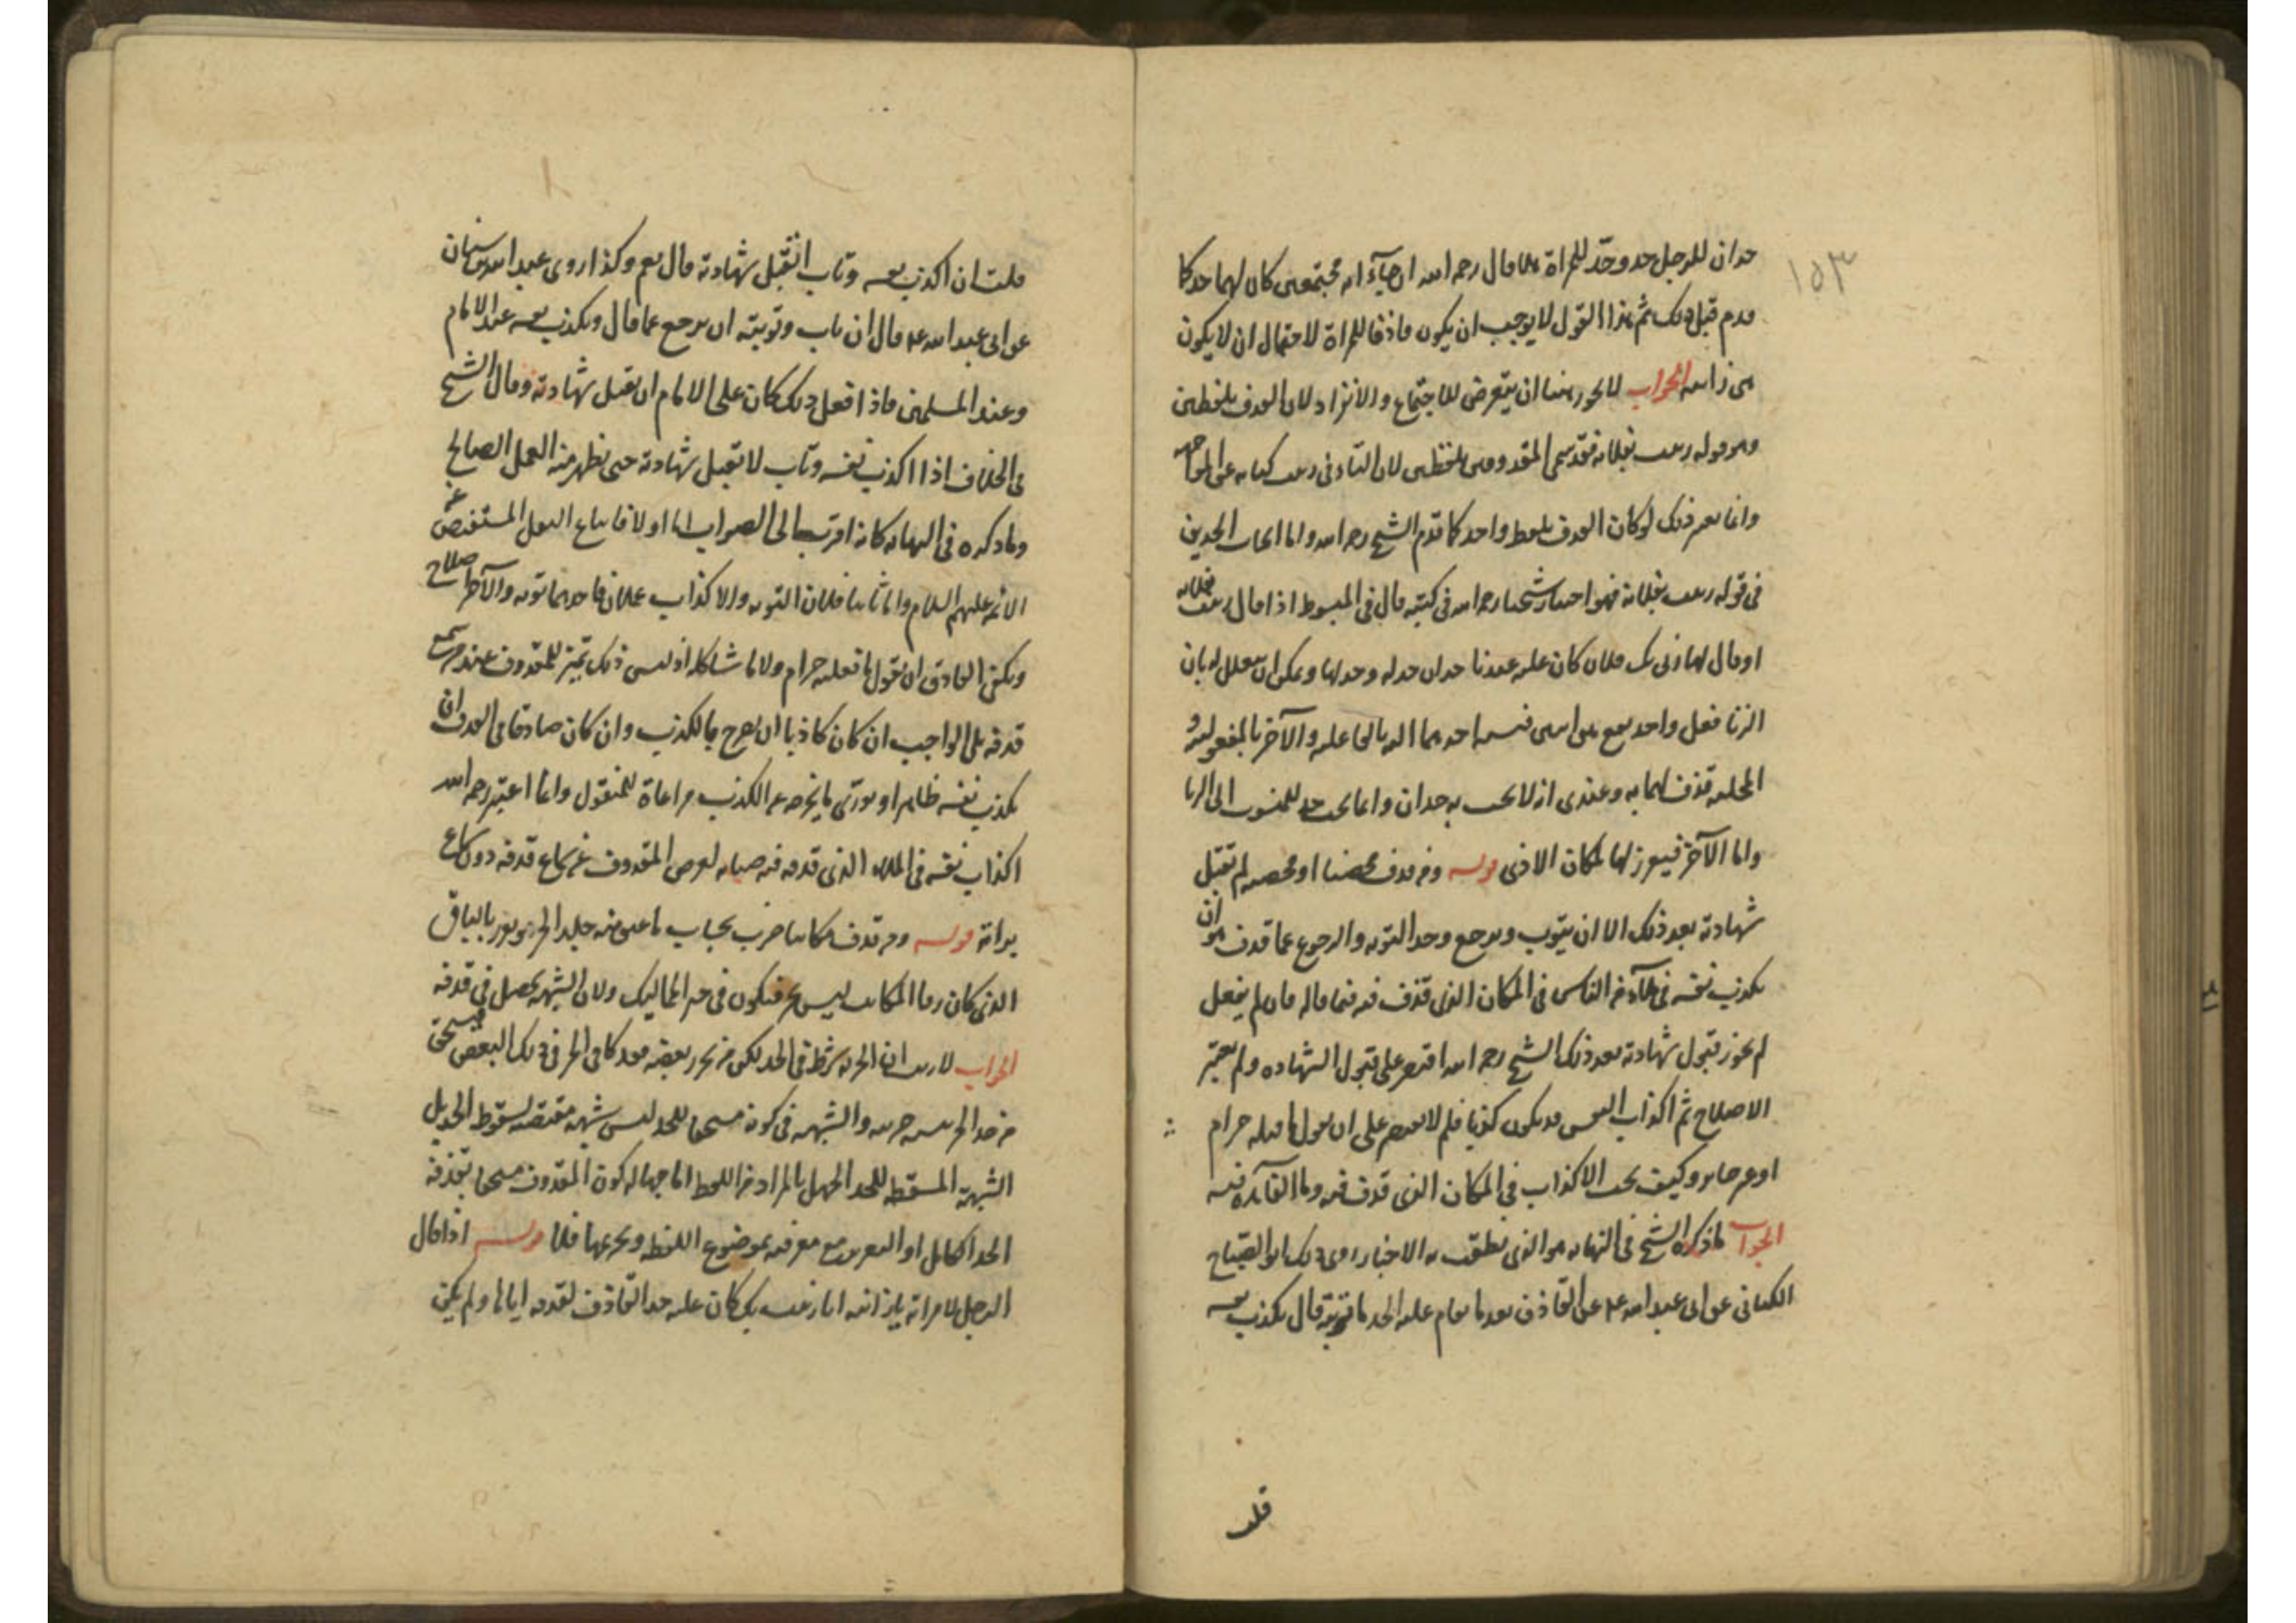 ١٥٣
حدان للرجل حد وحدّ للمراة فلا قال رحمه الله ان جاءا به مجتمعين كان لهما حد كما
قدم قبل ذلك ثم هذا القول لا يوجب ان يكون قاذفا للمراة لاحتمال ان لا يكون
هي زانية الجواب لا يجوز هنا ان يتعرض للاجتماع والانفراد لان القذف بلفظين
وهو قوله زنيت بفلانة فقد سمى المقذوفين بلفظين لان التاء في زنيت كناية عن المواجه
وانما يعتبر ذلك لو كان القذف بلفظ واحد كما قدم الشيخ رحمه الله واما ايجاب الحدين
في قوله زنيت بفلانة فهو اختيار شيخنا رحمه الله في كتبه قال في المبسوط اذا قال زنيت بفلانة
او قال لها زنى بك فلان كان عليه عندنا حدان حد له وحد لها ويمكن ان يعلل له بان
الزنا فعل واحد يقع بين اثنين نسبة احدهما اليه بالفاعلية والآخر بالمفعولية و
قذف لهما به وعندي انه لا يجب به حدان وانما يجب حد للمنسوب الى الزنا
واما الآخر فيعزر لها لمكان الاذى قوله ومن قذف محصنا او محصنة لم تقبل
شهادته بعد ذلك الا ان يتوب ويرجع وحد التوبة والرجوع عما قذف هو ان
يكذب نفسه في ملاء من الناس في المكان الذي قذف فيه فيما قاله فان لم يفعل
لم يجز قبول شهادته بعد ذلك الشيخ رحمه الله اقتصر على قبول الشهادة ولم يعتبر
الاصلاح ثم اكذاب النفس قد يكون كذبا فلم لا يقتصر على ان يقول ما قلته حرام
او غير جايز وكيف يجب الاكذاب في المكان الذي قذف فيه وما الفائدة فيه
الجواب ما ذكره الشيخ في النهاية هو الذي نطقت به الاخبار روى ذلك ابو الصباح
الكناني عن ابي عبد الله عه عن القاذف بعد ما يقام عليه الحد ما توبته قال يكذب نفسه
قلت
قلت ان اكذب نفسه وتاب اتقبل شهادته قال نعم وكذا روى عبد الله بن سنان
عن ابي عبد الله عه قال ان تاب وتوبته ان يرجع عما قال ويكذب نفسه عند الامام
وعند المسلمين فاذا فعل ذلك كان على الامام ان يقبل شهادته وقال الشيخ
في الخلاف اذا اكذب نفسه وتاب لا تقبل شهادته حتى يظهر منه العمل الصالح
وما ذكره في النهاية كانه اقرب الى الصواب اما اولا فاتباع النقل المستفيض عن
الائمة عليهم السلام واما ثانيا فلان التوبة والاكذاب عملان فاحدهما توبة والآخر اصلاح
ويكفي القاذف ان يقول ما فعلته حرام ولا ما شاكله اذ ليس ذلك للمقذوف عند من سمع
قذفه بل الواجب ان كان كاذبا ان يصرح بالكذب وان كان صادقا في القذف ان
يكذب نفسه ظاهرا ويوري ما يخرجه عن الكذب مراعاة للمنقول وانما اعتبر رحمه الله
اكذاب نفسه في الملاء الذي قذفه فيه صيانة لعرض المقذوف عن سماع قذفه دون سماع
براته قوله ومن قذف مكاتبا ضرب بحساب ما عتق منه حد الحر ويعزر بالباقي
الذي كان رقا المكاتب ليس بحر فيكون في حيز المماليك ولان الشبهة تحصل في قذفه
الجواب لا ريب ان الحرية شرط في الحد لكن من تحرر بعضه فهو كامل الحر في ذلك البعض فيستحق
من حد الحر بنسبة حريته والشبهة في كونه مستحقا للحد ليس شبهة مقتضية لسقوط الحد بل
الشبهة المسقطة للحد الجهل بالمراد من اللفظ اما جهالة كون المقذوف مستحقا بقذفه
الحد الكامل او التعزير مع معرفته بموضوع اللفظ وتحريمها فلا قوله اذا قال
الرجل لامراته يا زانية انا زنيت بك كان عليه حد القاذف لقذفه اياها ولم يكن